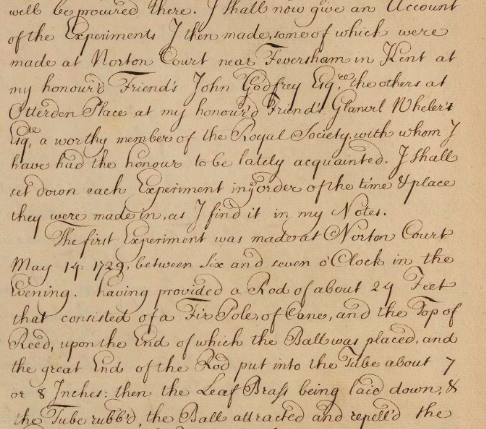 well be procured there. I shall now give an Account
of the Experiments I then made, some of which were
made at Norton Court near Feversham in Kent at
my honour'd Friend's John Godfrey Esqres, the others at
Otterden Place at my honour'd Friend's Granvil Wheler's
Esqre, a worthy member of the Royal Society, with whom I
have had the honour to be lately acquainted. I shall
set down each Experiment in order of the time & place
they were made in, as I find it in my Notes.
The first Experiment was made at Norton Court
May 14. 1729, between six and seven o'Clock in the
Evening. having provided a Rod of about 24 Feet
that consisted of a Fir Pole, of Canes, and the Top of
Reed, upon the End of which the Ball was placed, and
the great End of the Rod put into the Tube about 7
or 8 Inches: then the Leaf Brass being laid down, &
the Tube rubb'd, the Ball attracted and repell'd the